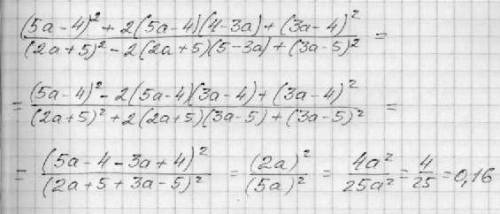 (5a-4)² + 2(5a-4)(4-3a) + (3a-4)² / (2a+5)² - 2(2a+5)(5-3a) + (3a-5)² =
= (5a-4)² - 2(5a-4)(3a-4) + (3a-4)² / (2a+5)² + 2(2a+5)(3a-5) + (3a-5)² =
= (5a-4-3a+4)² / (2a+5+3a-5)² = (2a)² / (5a)² = 4a² / 25a² = 4 / 25 = 0,16